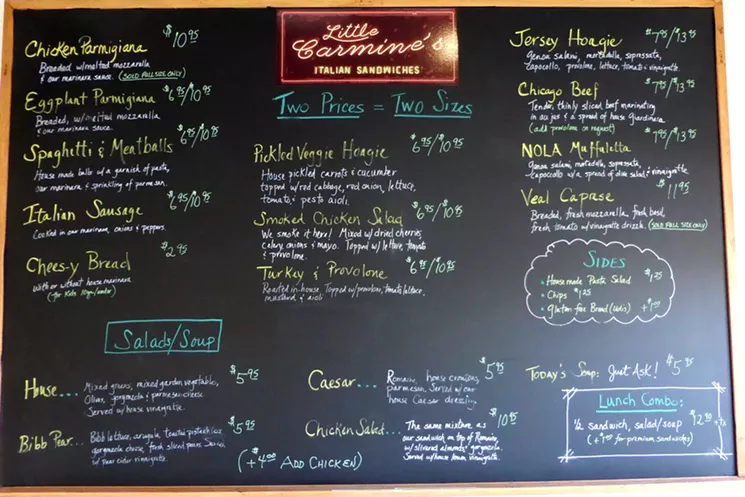 Little
Carmine's
ITALIAN SANDWICHES
Two Prices = Two Sizes
Chicken Parmigiana $10.95
Breaded w/melted mozzarella
& our marinara sauce. (SOLD FULL SIZE ONLY)
Eggplant Parmigiana $6.95/$10.95
Breaded, w/melted mozzarella
& our marinara sauce.
Spaghetti & Meatballs $6.95/$10.95
House made balls w/a garnish of pasta,
our marinara & sprinkling of parmesan.
Italian Sausage $6.95/$10.95
Cooked in our marinara, onions & peppers.
Chees-y Bread $2.95
With or without house marinara
(for kids 10yr/under)
Pickled Veggie Hoagie $6.95/$10.95
House pickled carrots & cucumber
topped w/red cabbage, red onion, lettuce,
tomato, & pesto aioli.
Smoked Chicken Salad $6.95/$10.95
We smoke it here! Mixed w/dried cherries,
celery, onions & mayo. Topped w/lettuce, tomato
& provolone.
Turkey & Provolone $6.95/$10.95
Roasted in-house. Topped w/provolone, tomato, lettuce,
mustard & aioli.
Jersey Hoagie $7.95/$13.95
Genoa salami, mortadella, sopressata,
capocollo, provolone, lettuce, tomato & vinaigrette.
Chicago Beef $7.95/$13.95
Tender, thinly sliced beef marinating
in au jus & a spread of house giardiniera.
(add provolone on request)
NOLA Muffuletta $7.95/$13.95
Genoa salami, mortadella, sopressata,
capocollo w/a spread of olive salad & vinaigrette.
Veal Caprase $11.95
Breaded, fresh mozzarella, fresh basil,
fresh tomato w/vinaigrette drizzle. (SOLD FULL SIZE ONLY)
Sides
• House made Pasta Salad $1.25
• Chips $1.25
• Gluten-free Bread (Udi's) +$1.00
Salads/Soup
House... $5.95
Mixed greens, mixed garden vegetables,
Olives, gorgonzola & parmesan cheese.
Served w/house vinaigrette.
Bibb Pear... $5.95
Bibb lettuce, arugula, toasted pistachios
gorgonzola cheese, fresh sliced pears. Served
w/pear cider vinaigrette.
(+$4.00 Add Chicken)
Caesar... $5.95
Romaine, house croutons,
parmesan. Served w/our
house Caesar dressing.
Chicken Salad... $10.95
The same mixture as
our sandwich on top of Romaine,
w/slivered almonds & gorgonzola.
Served w/house lemon vinaigrette.
Today's Soup: Just Ask! $5.95
Lunch Combo:
½ sandwich, salad/soup
(+$1.00 for premium sandwiches)